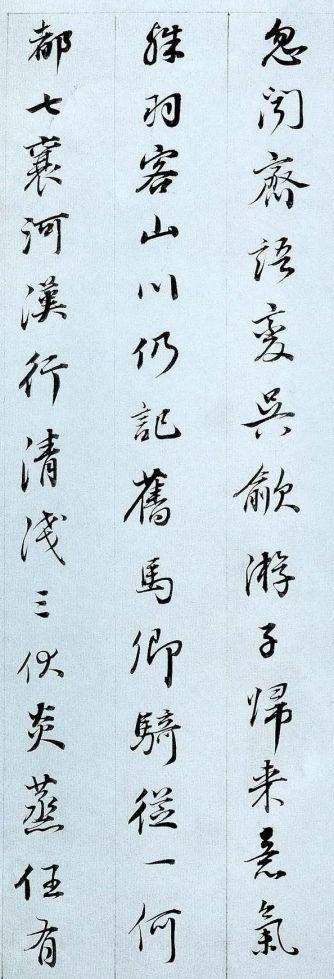 忽聞齊語變吳歈游子歸来意氣
殊羽客山川仍記舊馬卿騎從一何
都七襄河漢行清淺三伏炎蒸任有